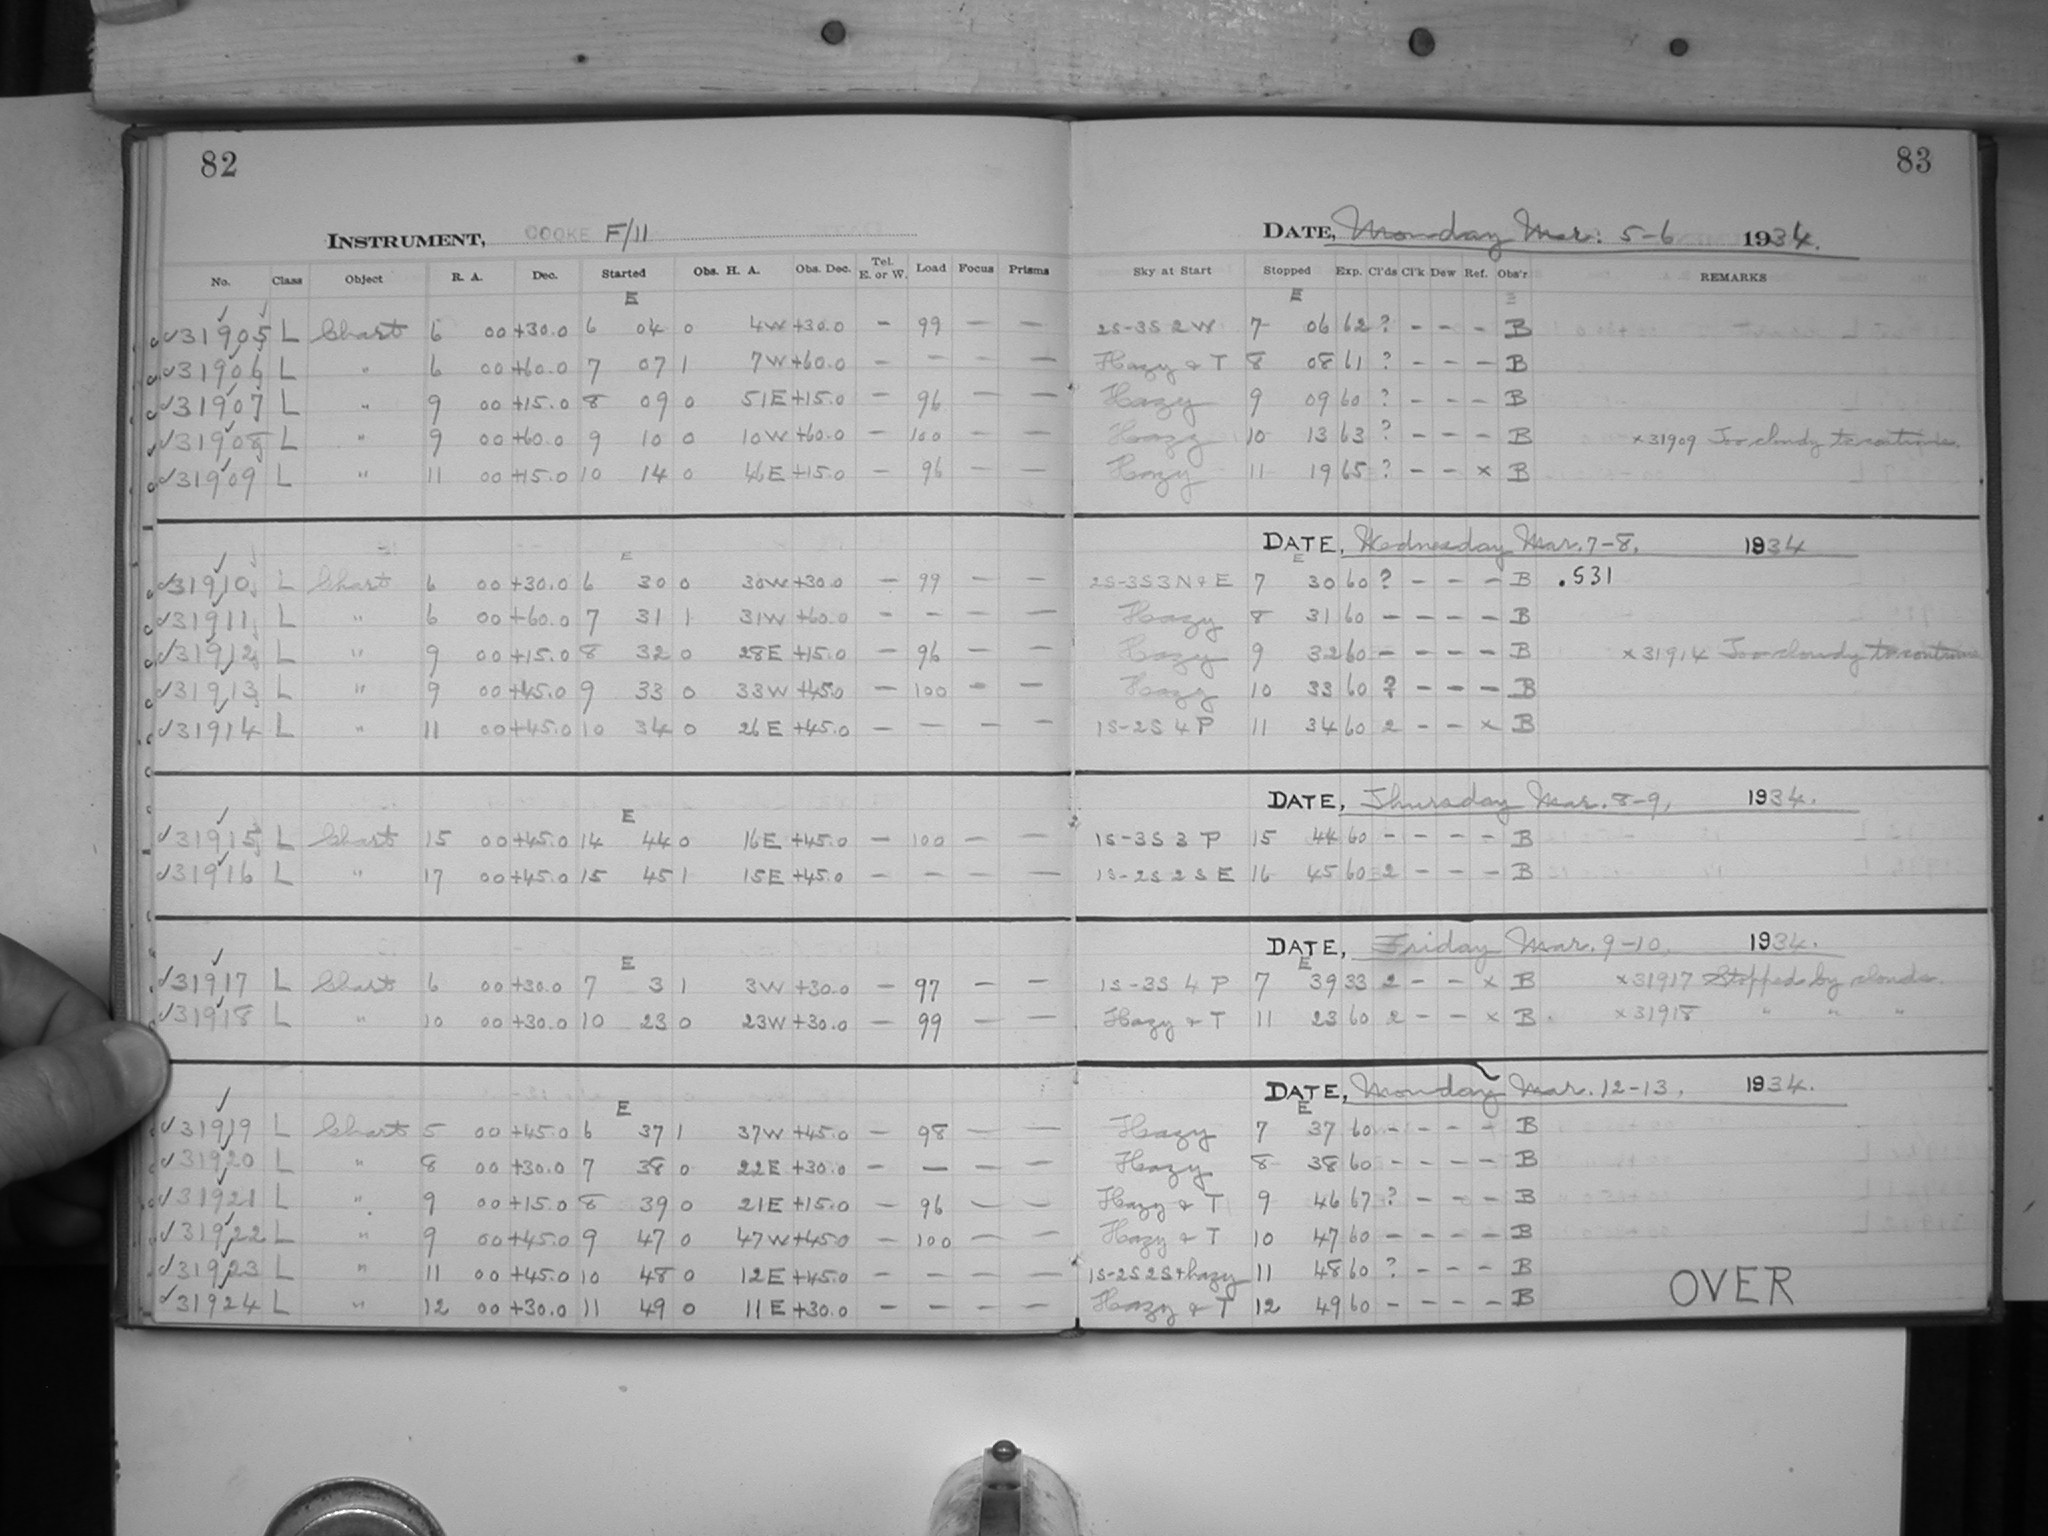 82
INSTRUMENT, COOKE F/11
No. Class Object R. A. Dec. Started Obs. H. A. Obs. Dec. Tel. E. or W. Load Focus Prisms
E
31905 L Chart 6 00 +30.0 6 04 0 4W +30.0 - 99 - -
31906 L " 6 00 +60.0 7 07 1 7W +60.0 - - - -
31907 L " 9 00 +15.0 8 09 0 51E +15.0 - 96 - -
31908 L " 9 00 +60.0 9 10 0 10W +60.0 - 100 - -
31909 L " 11 00 +15.0 10 14 0 46E +15.0 - 96 - -
E
31910 L Chart 6 00 +30.0 6 30 0 30W +30.0 - 99 - -
31911 L " 6 00 +60.0 7 31 1 31W +60.0 - - - -
31912 L " 9 00 +15.0 8 32 0 28E +15.0 - 96 - -
31913 L " 9 00 +45.0 9 33 0 33W +45.0 - 100 - -
31914 L " 11 00 +45.0 10 34 0 26E +45.0 - - - -
E
31915 L Chart 15 00 +45.0 14 44 0 16E +45.0 - 100 - -
31916 L " 17 00 +45.0 15 45 1 15E +45.0 - - - -
E
31917 L Chart 6 00 +30.0 7 3 1 3W +30.0 - 97 - -
31918 L " 10 00 +30.0 10 23 0 23W +30.0 - 99 - -
E
31919 L Chart 5 00 +45.0 6 37 1 37W +45.0 - 98 - -
31920 L " 8 00 +30.0 7 38 0 22E +30.0 - - - -
31921 L " 9 00 +15.0 8 39 0 21E +15.0 - 96 - -
31922 L " 9 00 +45.0 9 47 0 47W +45.0 - 100 - -
31923 L " 11 00 +45.0 10 48 0 12E +45.0 - - - -
31924 L " 12 00 +30.0 11 49 0 11E +30.0 - - - -
83
DATE, Monday Mar. 5-6 1934.
Sky at Start Stopped Exp. Cl'ds Cl'k Dew Ref. Obs'r REMARKS
E
2S-3S 2 W 7 06 62 ? - - - B
Hazy & T 8 08 61 ? - - - B
Hazy 9 09 60 ? - - - B
Hazy 10 13 63 ? - - - B x31909 Too cloudy to continue.
Hazy 11 19 65 ? - - x B
DATE, Wednesday Mar. 7-8, 1934
E
2S-3S 3 N & E 7 30 60 ? - - - B .531
Hazy 8 31 60 - - - - B
Hazy 9 32 60 - - - - B x31914 Too cloudy to continue
Hazy 10 33 60 ? - - - B
1S-2S 4 P 11 34 60 2 - - x B
DATE, Thursday Mar. 8-9, 1934.
1S-3S 3 P 15 44 60 - - - - B
1S-2S 2 S E 16 45 60 2 - - - B
DATE, Friday Mar. 9-10, 1934.
E
1S-3S 4 P 7 39 33 2 - - x B x31917 Stopped by clouds.
Hazy & T 11 23 60 2 - - x B x31918 " " "
DATE, Monday Mar. 12-13, 1934.
E
Hazy 7 37 60 - - - - B
Hazy 8 38 60 - - - - B
Hazy & T 9 46 67 ? - - - B
Hazy & T 10 47 60 - - - - B
1S-2S 2S & hazy 11 48 60 ? - - - B
Hazy & T 12 49 60 - - - - B
OVER